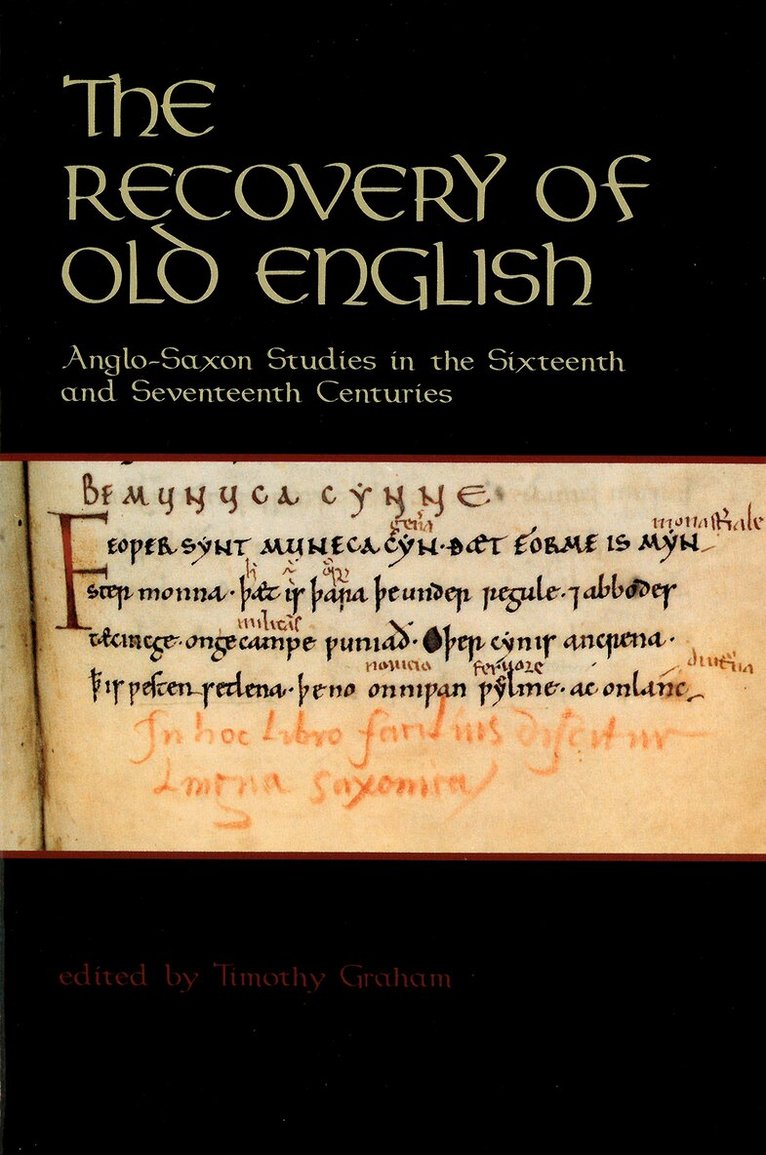 The
Recovery of
Old English
Anglo-Saxon Studies in the Sixteenth
and Seventeenth Centuries
BE MUNUCA CYNNE
gen̄a monastẏiale
FEOWER SYNT MUNECA CYN· ÐÆT FORME IS MYN
ster monna· þæt is þara þe under regule· ⁊ abboder
tæcinege· on gecampe wuniað· Oþer cynis ancrena·
nouicio feruore diut̄na
þis westen setlena· þe no onniwan wylme· ac on lanc
In hoc Libro facilius discitur
Lingua saxonica
edited by Timothy Graham